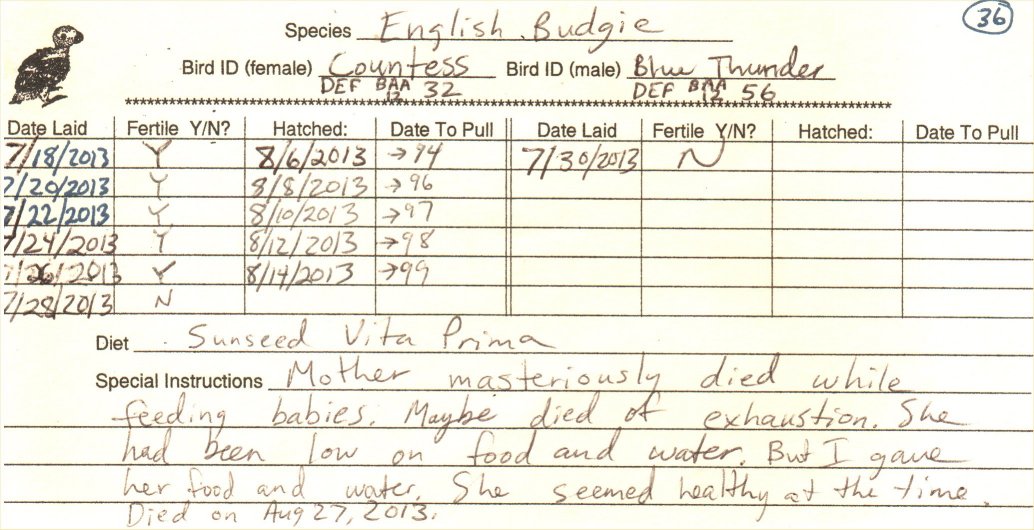 36
Species English Budgie
Bird ID (female) Countess Bird ID (male) Blue Thunder
DEF BAA 12 32 DEF BAA 12 56
***********************************************************************************
Date Laid Fertile Y/N? Hatched: Date To Pull Date Laid Fertile Y/N? Hatched: Date To Pull
7/18/2013 Y 8/6/2013 →94 7/30/2013 N
7/20/2013 Y 8/8/2013 →96
7/22/2013 Y 8/10/2013 →97
7/24/2013 Y 8/12/2013 →98
7/26/2013 Y 8/14/2013 →99
7/28/2013 N
Diet Sunseed Vita Prima
Special Instructions Mother masteriously died while
feeding babies. Maybe died of exhaustion. She
had been low on food and water. But I gave
her food and water. She seemed healthy at the time.
Died on Aug 27, 2013.